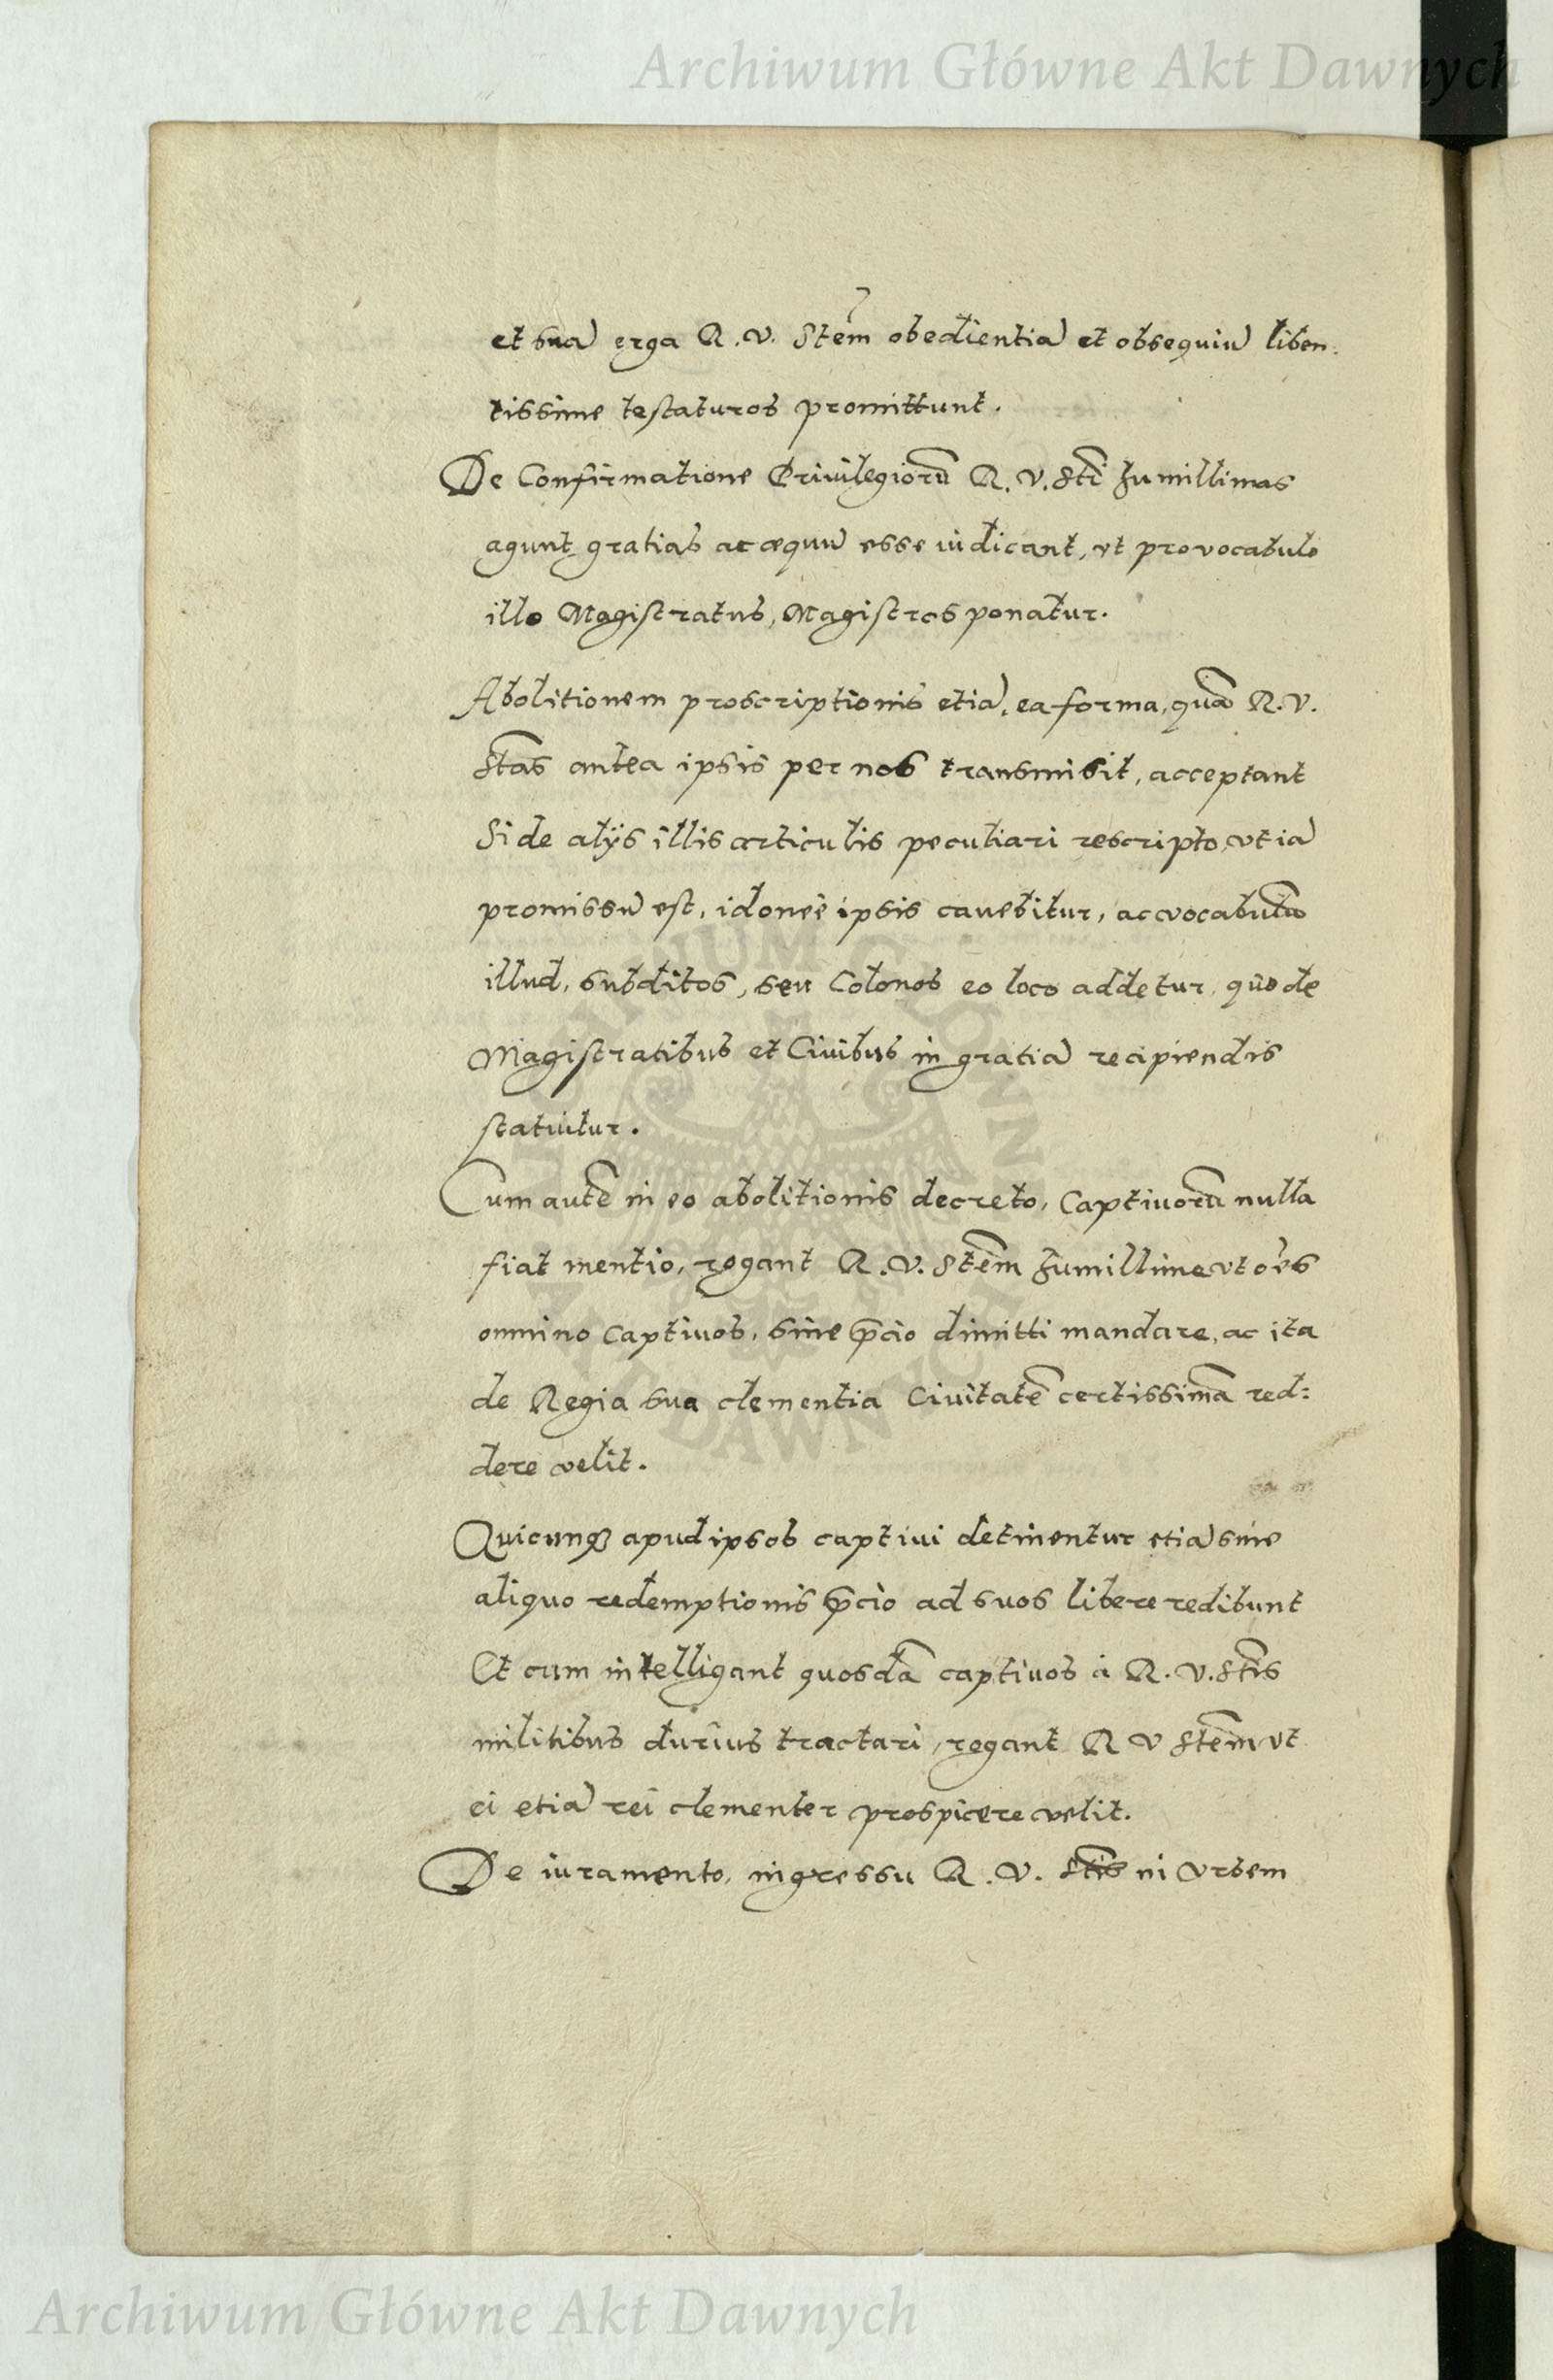 Archiwum Główne Akt Dawnych
et sua erga R. V. Stem obedientia et obsequiu liben.
tissime testaturos promittunt.
De Confirmatione Privilegioru R. V. Sti humillimas
agunt gratias ac æquu esse iudicant, vt pro vocabulo
illo Magistratus, Magistros ponatur.
Abolitionem proscriptionis etia, ea forma, qua R. V.
Stas antea ipsis per nos transmisit, acceptant
Si de alijs illis articulis peculiari rescripto, vt ia
promissu est, idoneè ipsis cauebitur, ac vocabulu
illud, subditos, seu Colonos eo loco addetur, quo de
Magistratibus et Ciuibus in gratia recipiendis
statuitur.
Cum aute in eo abolitionis decreto, Captiuoru nulla
fiat mentio, rogant R. V. Stem humillime vt oes
omnino Captiuos, sine pcio dimitti mandare, ac ita
de Regia sua clementia Ciuitate certissima red:
dere velit.
Quicunq apud ipsos captiui detinentur etia sine
aliquo redemptionis pcio ad suos libere redibunt
Et cum intelligant quosda captiuos à R. V. Stis
militibus durius tractari, rogant R V Stem vt
ei etia rei clementer prospicere velit.
De iuramento, ingressu R. V. Stis in Vrbem
Archiwum Główne Akt Dawnych